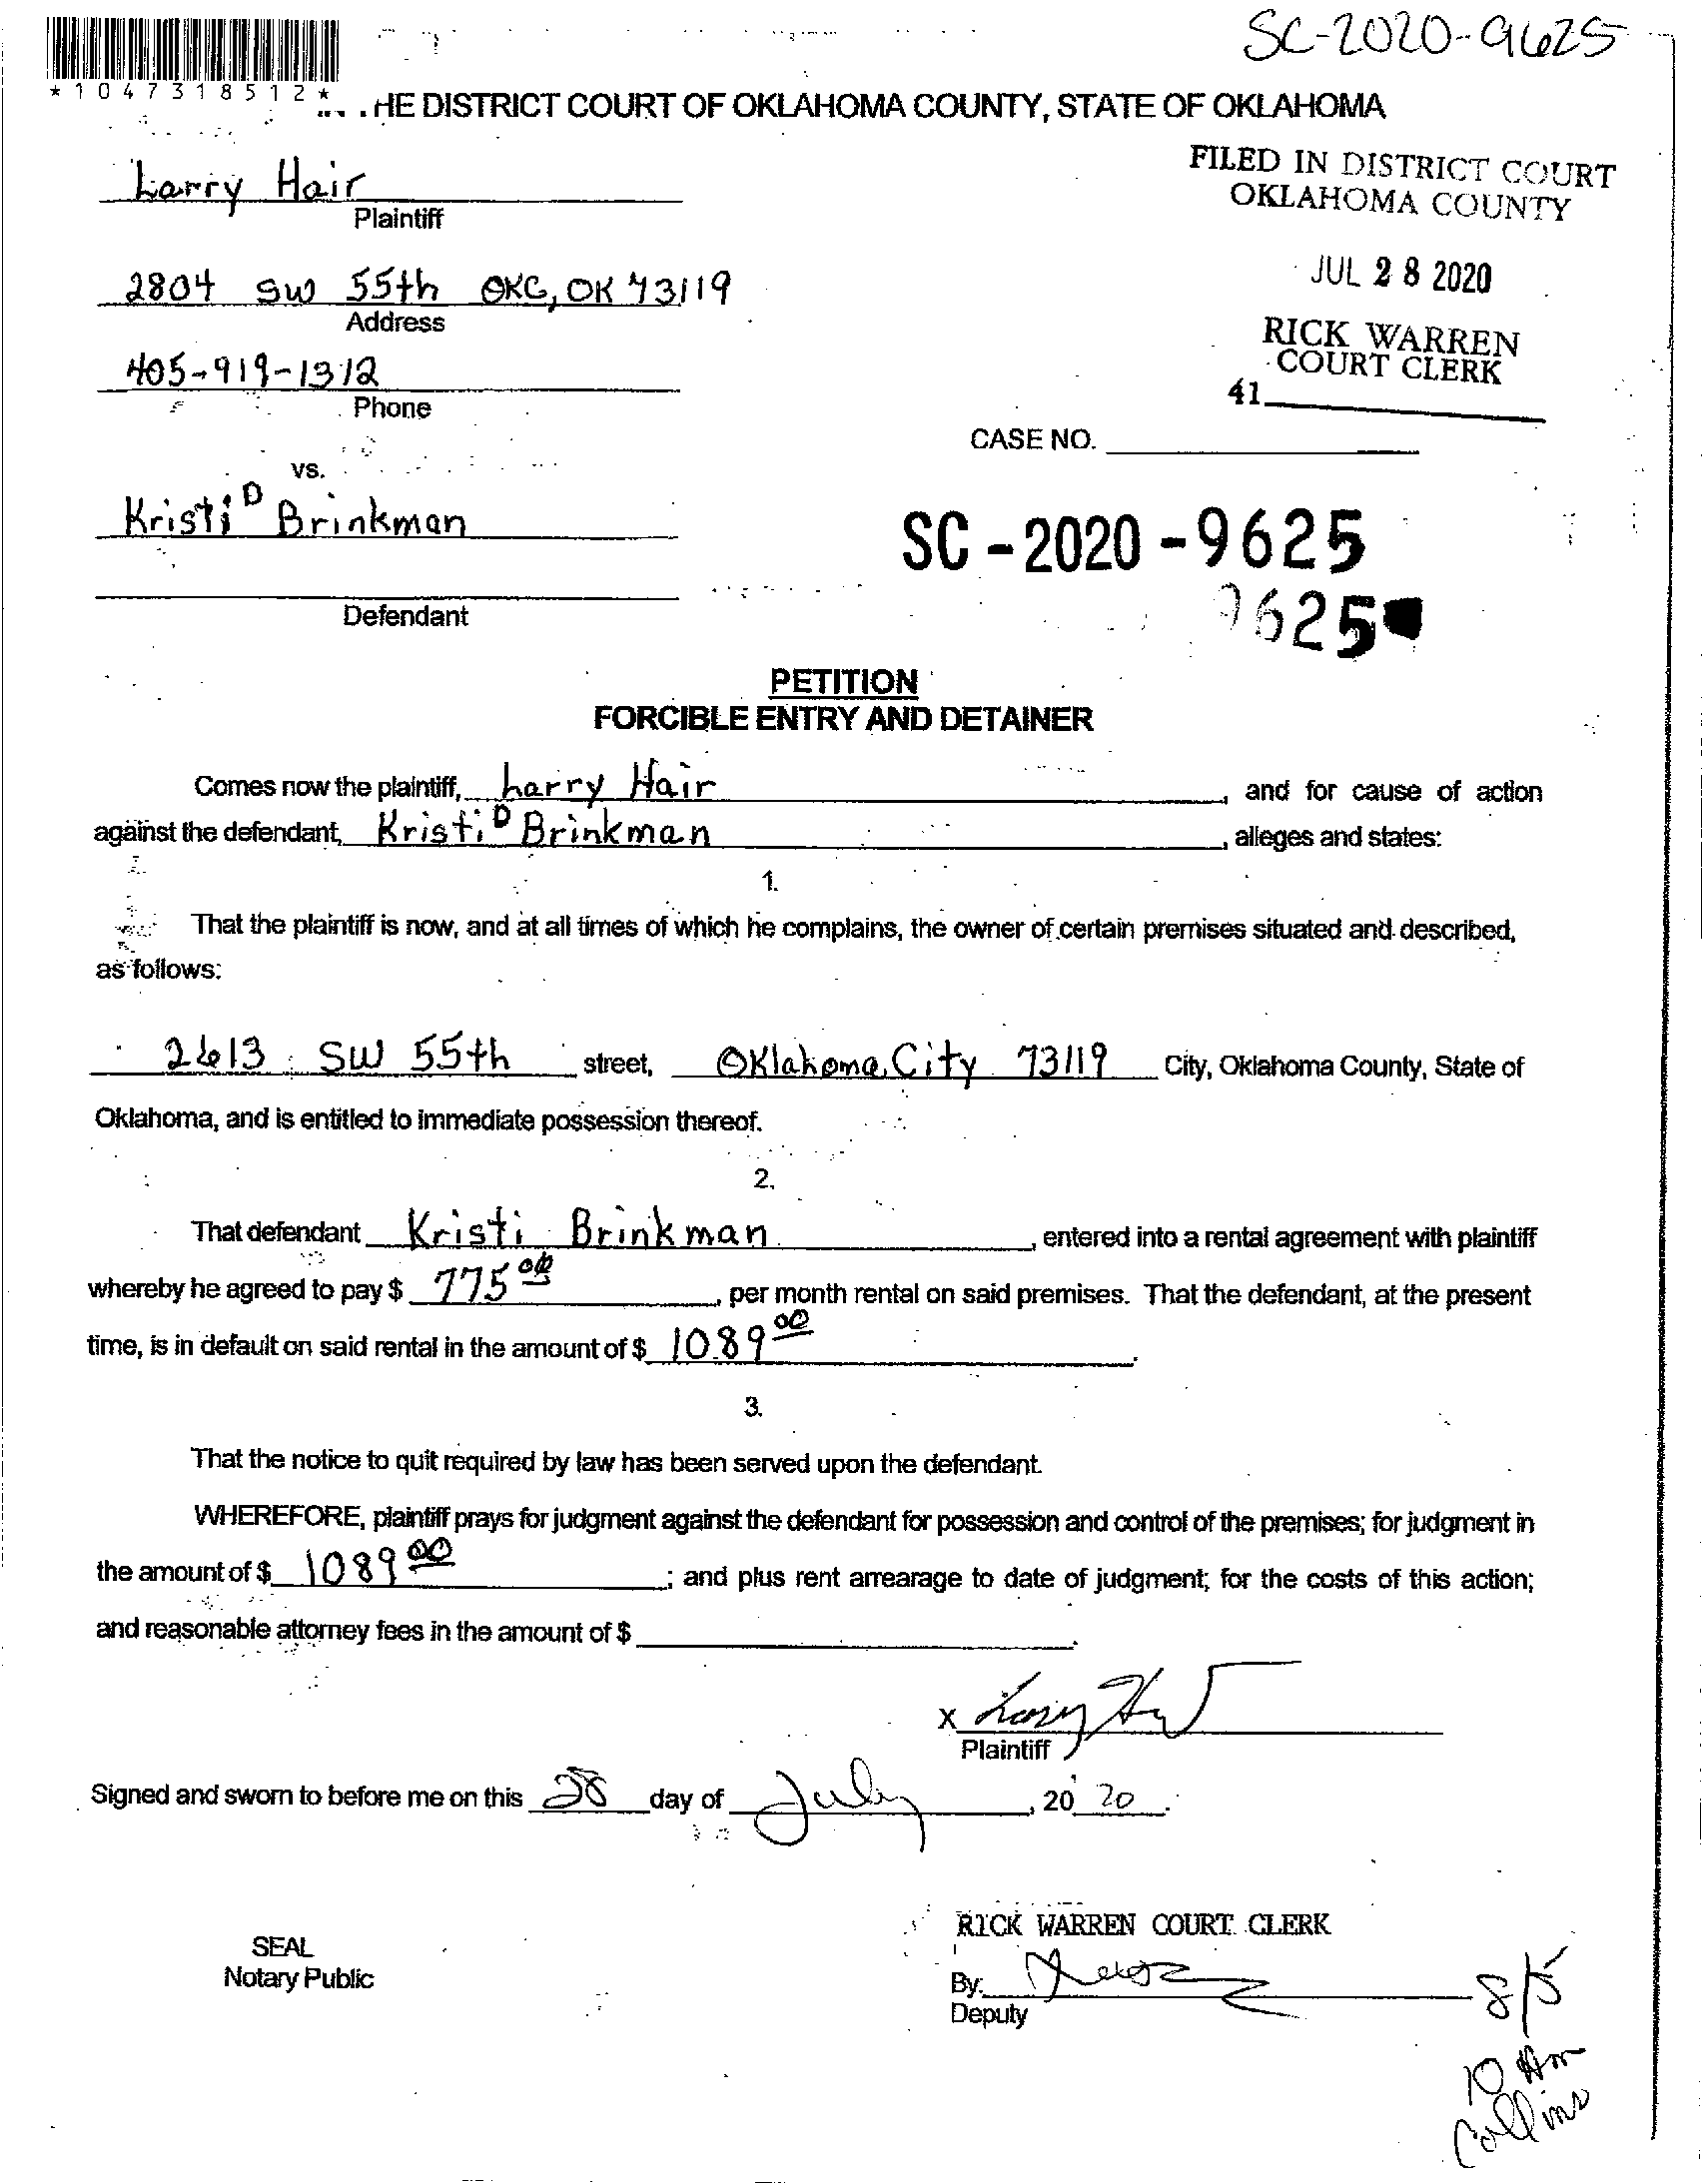 SC-2020-9625
*1047318512*
HE DISTRICT COURT OF OKLAHOMA COUNTY, STATE OF OKLAHOMA
Larry Hair
Plaintiff
FILED IN DISTRICT COURT
OKLAHOMA COUNTY
2804 SW 55th OKC, OK 73119
Address
JUL 28 2020
405-919-1312
Phone
RICK WARREN
COURT CLERK
41
CASE NO.
vs.
Kristi D Brinkman
Defendant
SC-2020-9625
9625
PETITION
FORCIBLE ENTRY AND DETAINER
Comes now the plaintiff, Larry Hair, and for cause of action
against the defendant, Kristi D Brinkman, alleges and states:
1.
That the plaintiff is now, and at all times of which he complains, the owner of certain premises situated and described,
as follows:
2613 SW 55th street, Oklahoma City 73119 City, Oklahoma County, State of
Oklahoma, and is entitled to immediate possession thereof.
2.
That defendant Kristi Brinkman, entered into a rental agreement with plaintiff
whereby he agreed to pay $ 775 00, per month rental on said premises. That the defendant, at the present
time, is in default on said rental in the amount of $ 1089 00.
3.
That the notice to quit required by law has been served upon the defendant.
WHEREFORE, plaintiff prays for judgment against the defendant for possession and control of the premises; for judgment in
the amount of $ 1089 00; and plus rent arrearage to date of judgment; for the costs of this action;
and reasonable attorney fees in the amount of $.
X Larry Hair
Plaintiff
Signed and sworn to before me on this 28 day of July, 20 20.
SEAL
Notary Public
RICK WARREN COURT CLERK
By:
Deputy
8/5
10 Am
Collins